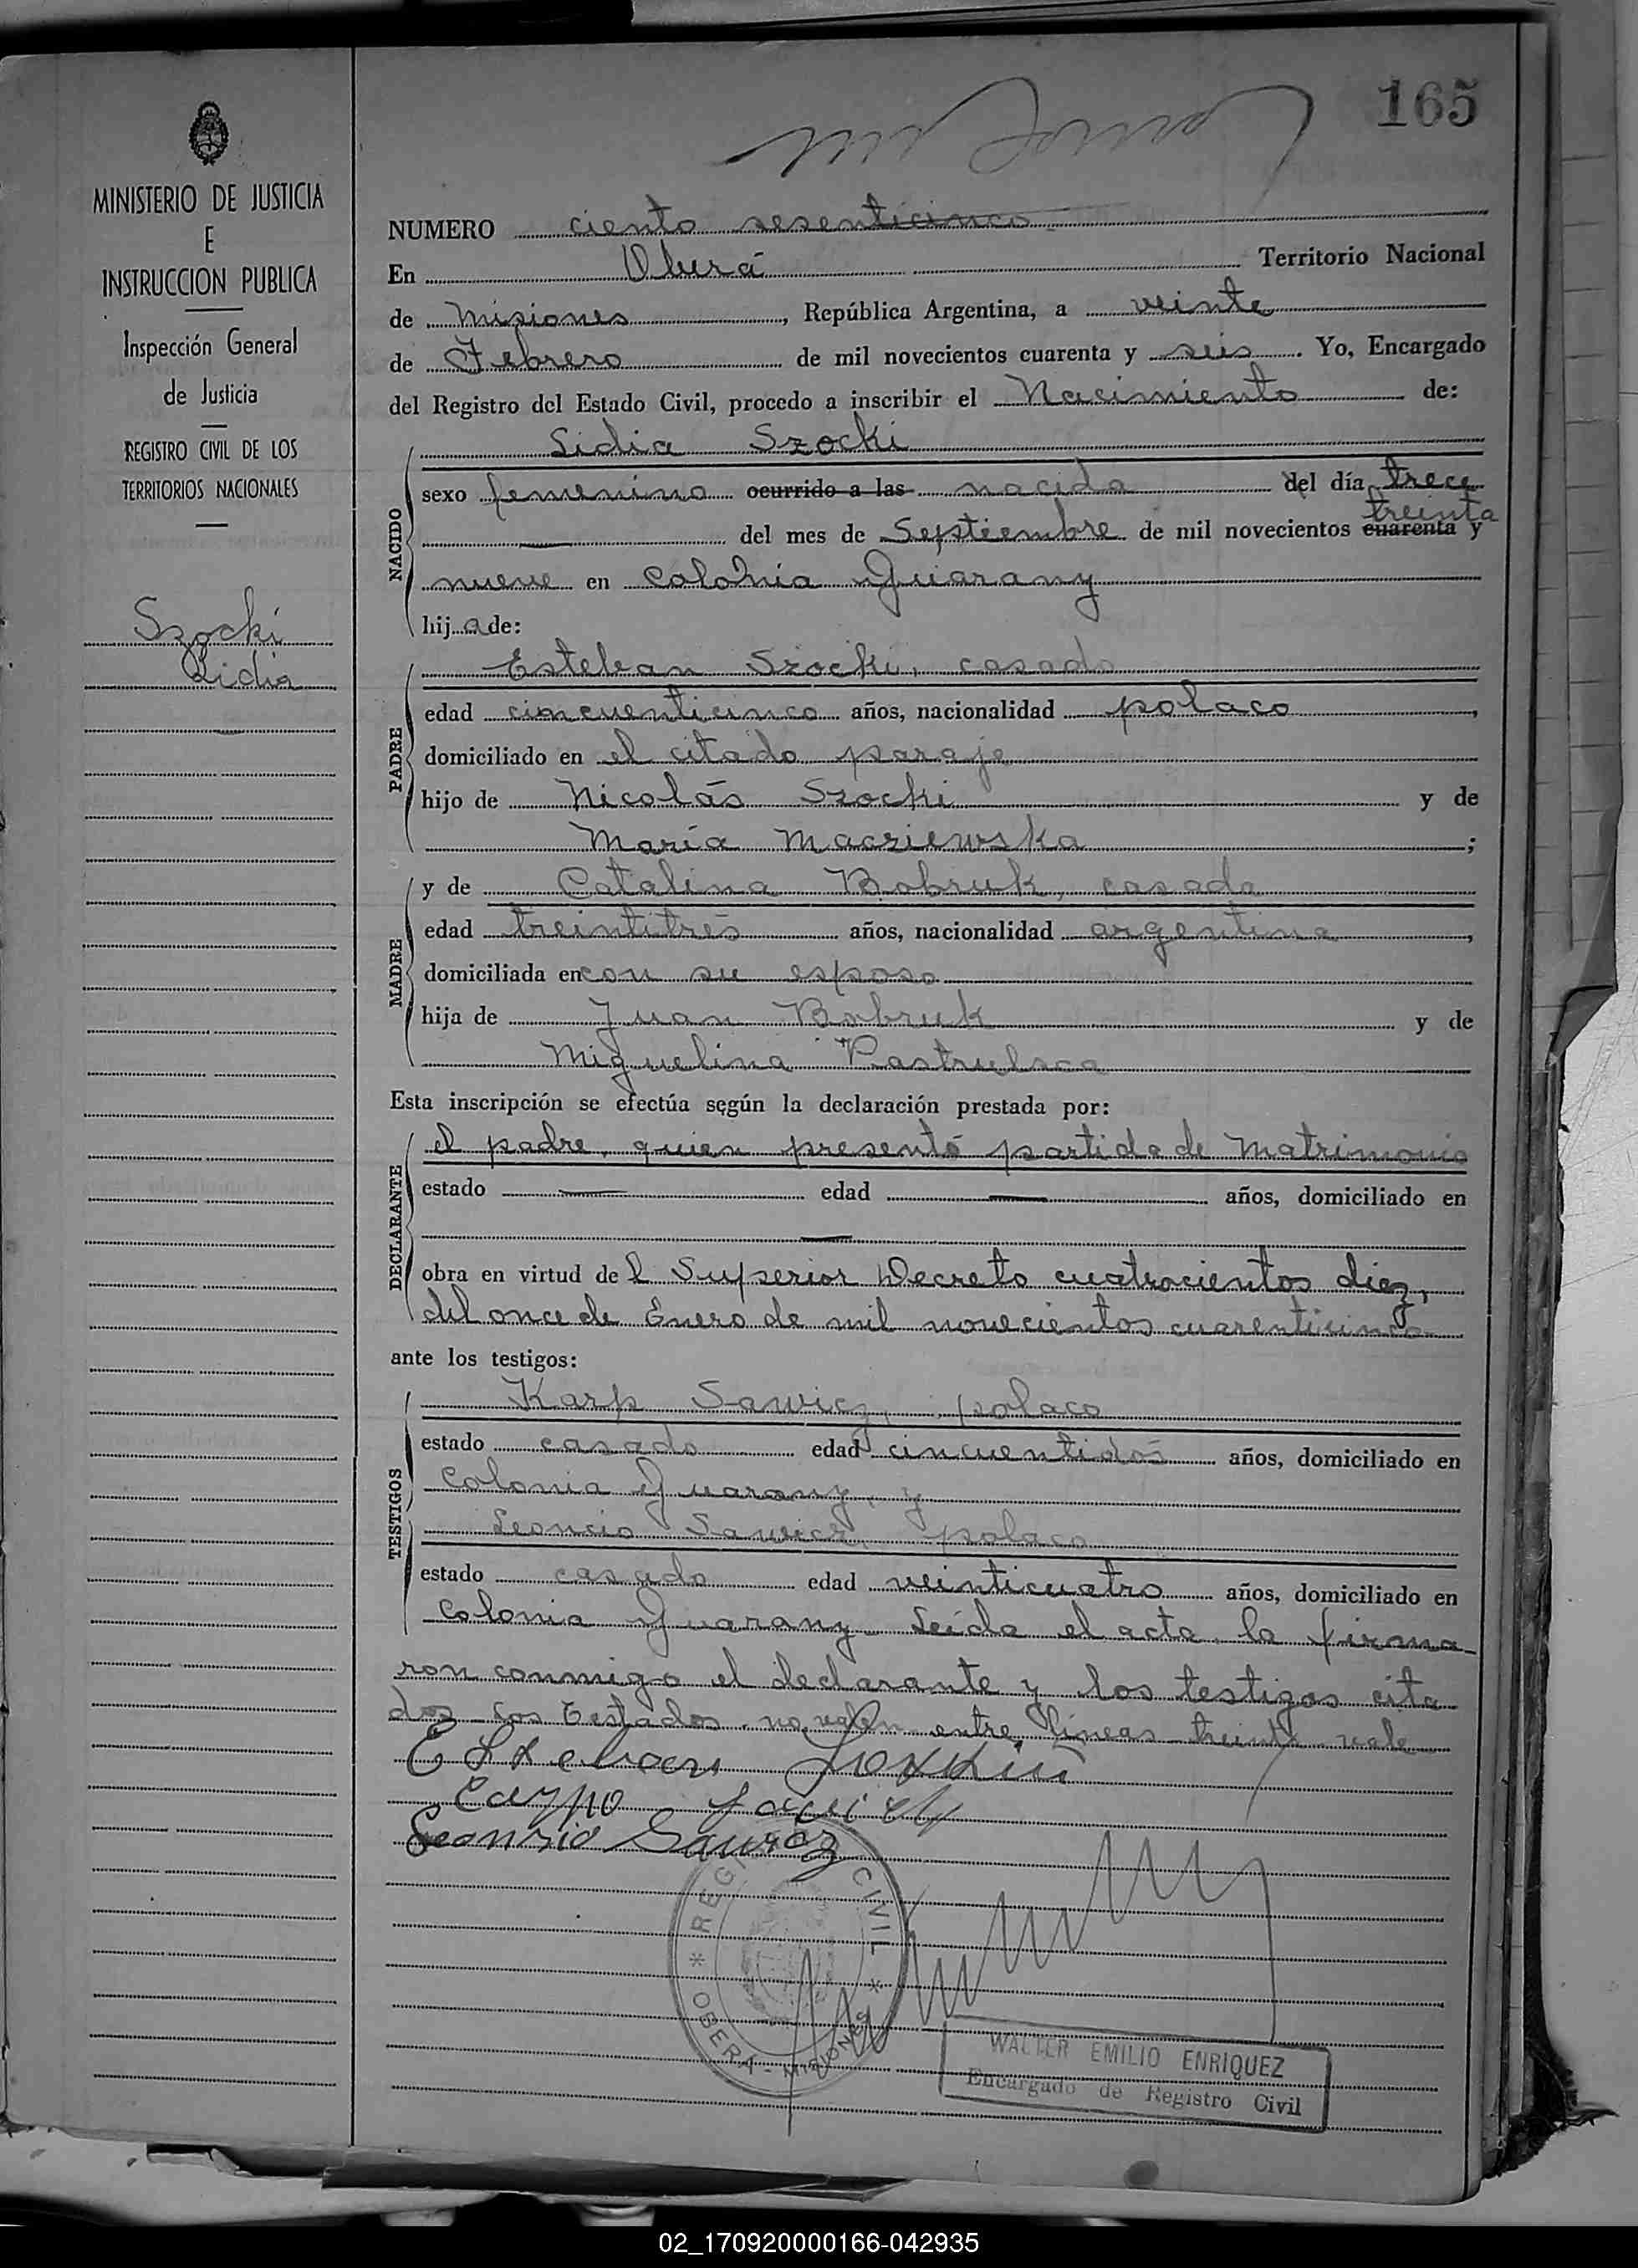 165
MINISTERIO DE JUSTICIA
E
INSTRUCCION PUBLICA
Inspección General
de Justicia
REGISTRO CIVIL DE LOS
TERRITORIOS NACIONALES
Szocki
Lidia
NUMERO ciento sesenticinco
En Oberá Territorio Nacional
de Misiones, República Argentina, a veinte
de Febrero de mil novecientos cuarenta y seis. Yo, Encargado
del Registro del Estado Civil, procedo a inscribir el Nacimiento de:
NACIDO
Lidia Szocki
sexo femenino ocurrido a las nacida del día trece
treinta
del mes de Septiembre de mil novecientos cuarenta y
nueve en Colonia Guarany
hija de:
PADRE
Esteban Szocki, casado
edad cincuenticinco años, nacionalidad polaco,
domiciliado en el citado paraje
hijo de Nicolás Szocki y de
María Macziewska;
MADRE
y de Catalina Bobruk, casada
edad treintitrés años, nacionalidad argentina,
domiciliada en con su esposo
hija de Juan Bobruk y de
Miguelina
Esta inscripción se efectúa según la declaración prestada por:
DECLARANTE
el padre, quien presentó partida de matrimonio
estado — edad — años, domiciliado en
—
obra en virtud del Superior Decreto cuatrocientos diez,
del once de Enero de mil novecientos cuarenticinco
ante los testigos:
TESTIGOS
Karp Sawicz, polaco
estado casado edad cincuentidós años, domiciliado en
Colonia Guarany, y
Leoncio Sawicz, polaco
estado casado edad veinticuatro años, domiciliado en
Colonia Guarany. Leída el acta, la firma-
ron conmigo el declarante y los testigos cita
dos. Los testados no valen entre líneas treinta vale
Esteban
Leonsio Sawicz
REGISTRO CIVIL
* OBERA - MISIONES *
WALTER EMILIO ENRIQUEZ
Encargado de Registro Civil
02_170920000166-042935